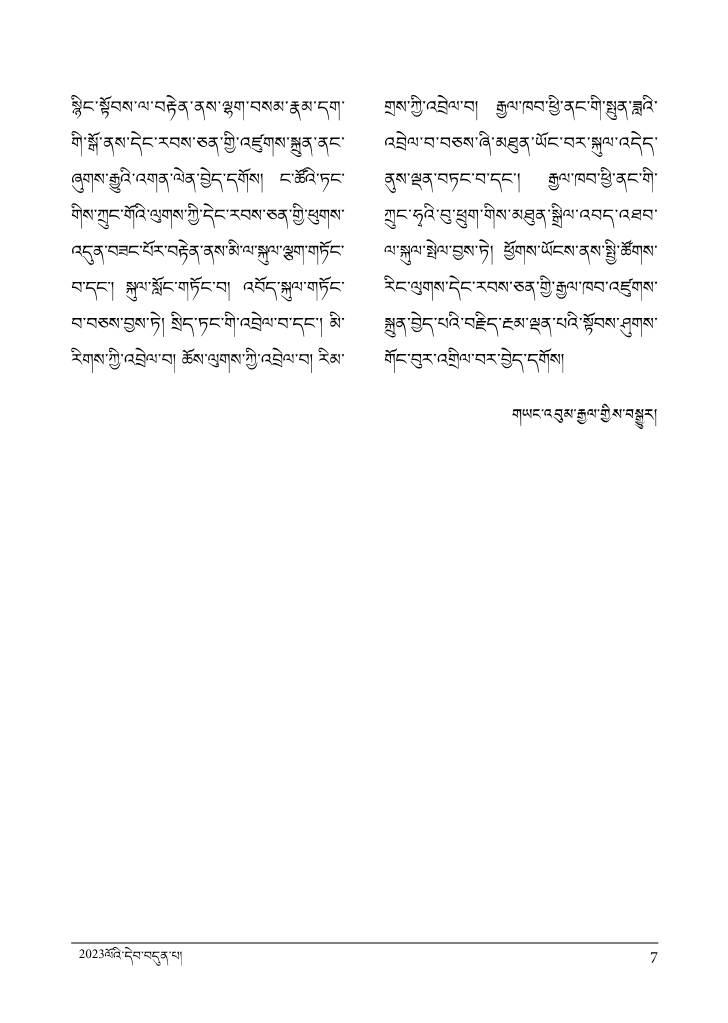 སྙིང་སྟོབས་ལ་བརྟེན་ནས་ལྷག་བསམ་རྣམ་དག་
གི་སྒོ་ནས་དེང་རབས་ཅན་གྱི་འཛུགས་སྐྲུན་ནང་
ཞུགས་རྒྱུའི་འགན་ལེན་བྱེད་དགོས། ང་ཚོའི་ཏང་
གིས་ཀྲུང་གོའི་ལུགས་ཀྱི་དེང་རབས་ཅན་གྱི་ཕུགས་
འདུན་བཟང་པོར་བརྟེན་ནས་མི་ལ་སྐུལ་ལྕག་གཏོང་
བ་དང་། སྐུལ་སློང་གཏོང་བ། འབོད་སྐུལ་གཏོང་
བ་བཅས་བྱས་ཏེ། སྲིད་ཏང་གི་འབྲེལ་བ་དང་། མི་
རིགས་ཀྱི་འབྲེལ་བ། ཆོས་ལུགས་ཀྱི་འབྲེལ་བ། རིམ་
གྲས་ཀྱི་འབྲེལ་བ། རྒྱལ་ཁབ་ཕྱི་ནང་གི་སྤུན་ཟླའི་
འབྲེལ་བ་བཅས་ཞི་མཐུན་ཡོང་བར་སྐུལ་འདེད་
ནུས་ལྡན་བཏང་བ་དང་། རྒྱལ་ཁབ་ཕྱི་ནང་གི་
ཀྲུང་ཧྭའི་བུ་ཕྲུག་གིས་མཐུན་སྒྲིལ་འབད་འཐབ་
ལ་སྐུལ་སྤེལ་བྱས་ཏེ། ཕྱོགས་ཡོངས་ནས་སྤྱི་ཚོགས་
རིང་ལུགས་དེང་རབས་ཅན་གྱི་རྒྱལ་ཁབ་འཛུགས་
སྐྲུན་བྱེད་པའི་བརྗིད་རྔམ་ལྡན་པའི་སྟོབས་ཤུགས་
གོང་བུར་འགྲིལ་བར་བྱེད་དགོས།
གཡང་འབུམ་རྒྱལ་གྱིས་བསྒྱུར།
2023ལོའི་དེབ་བདུན་པ།
7